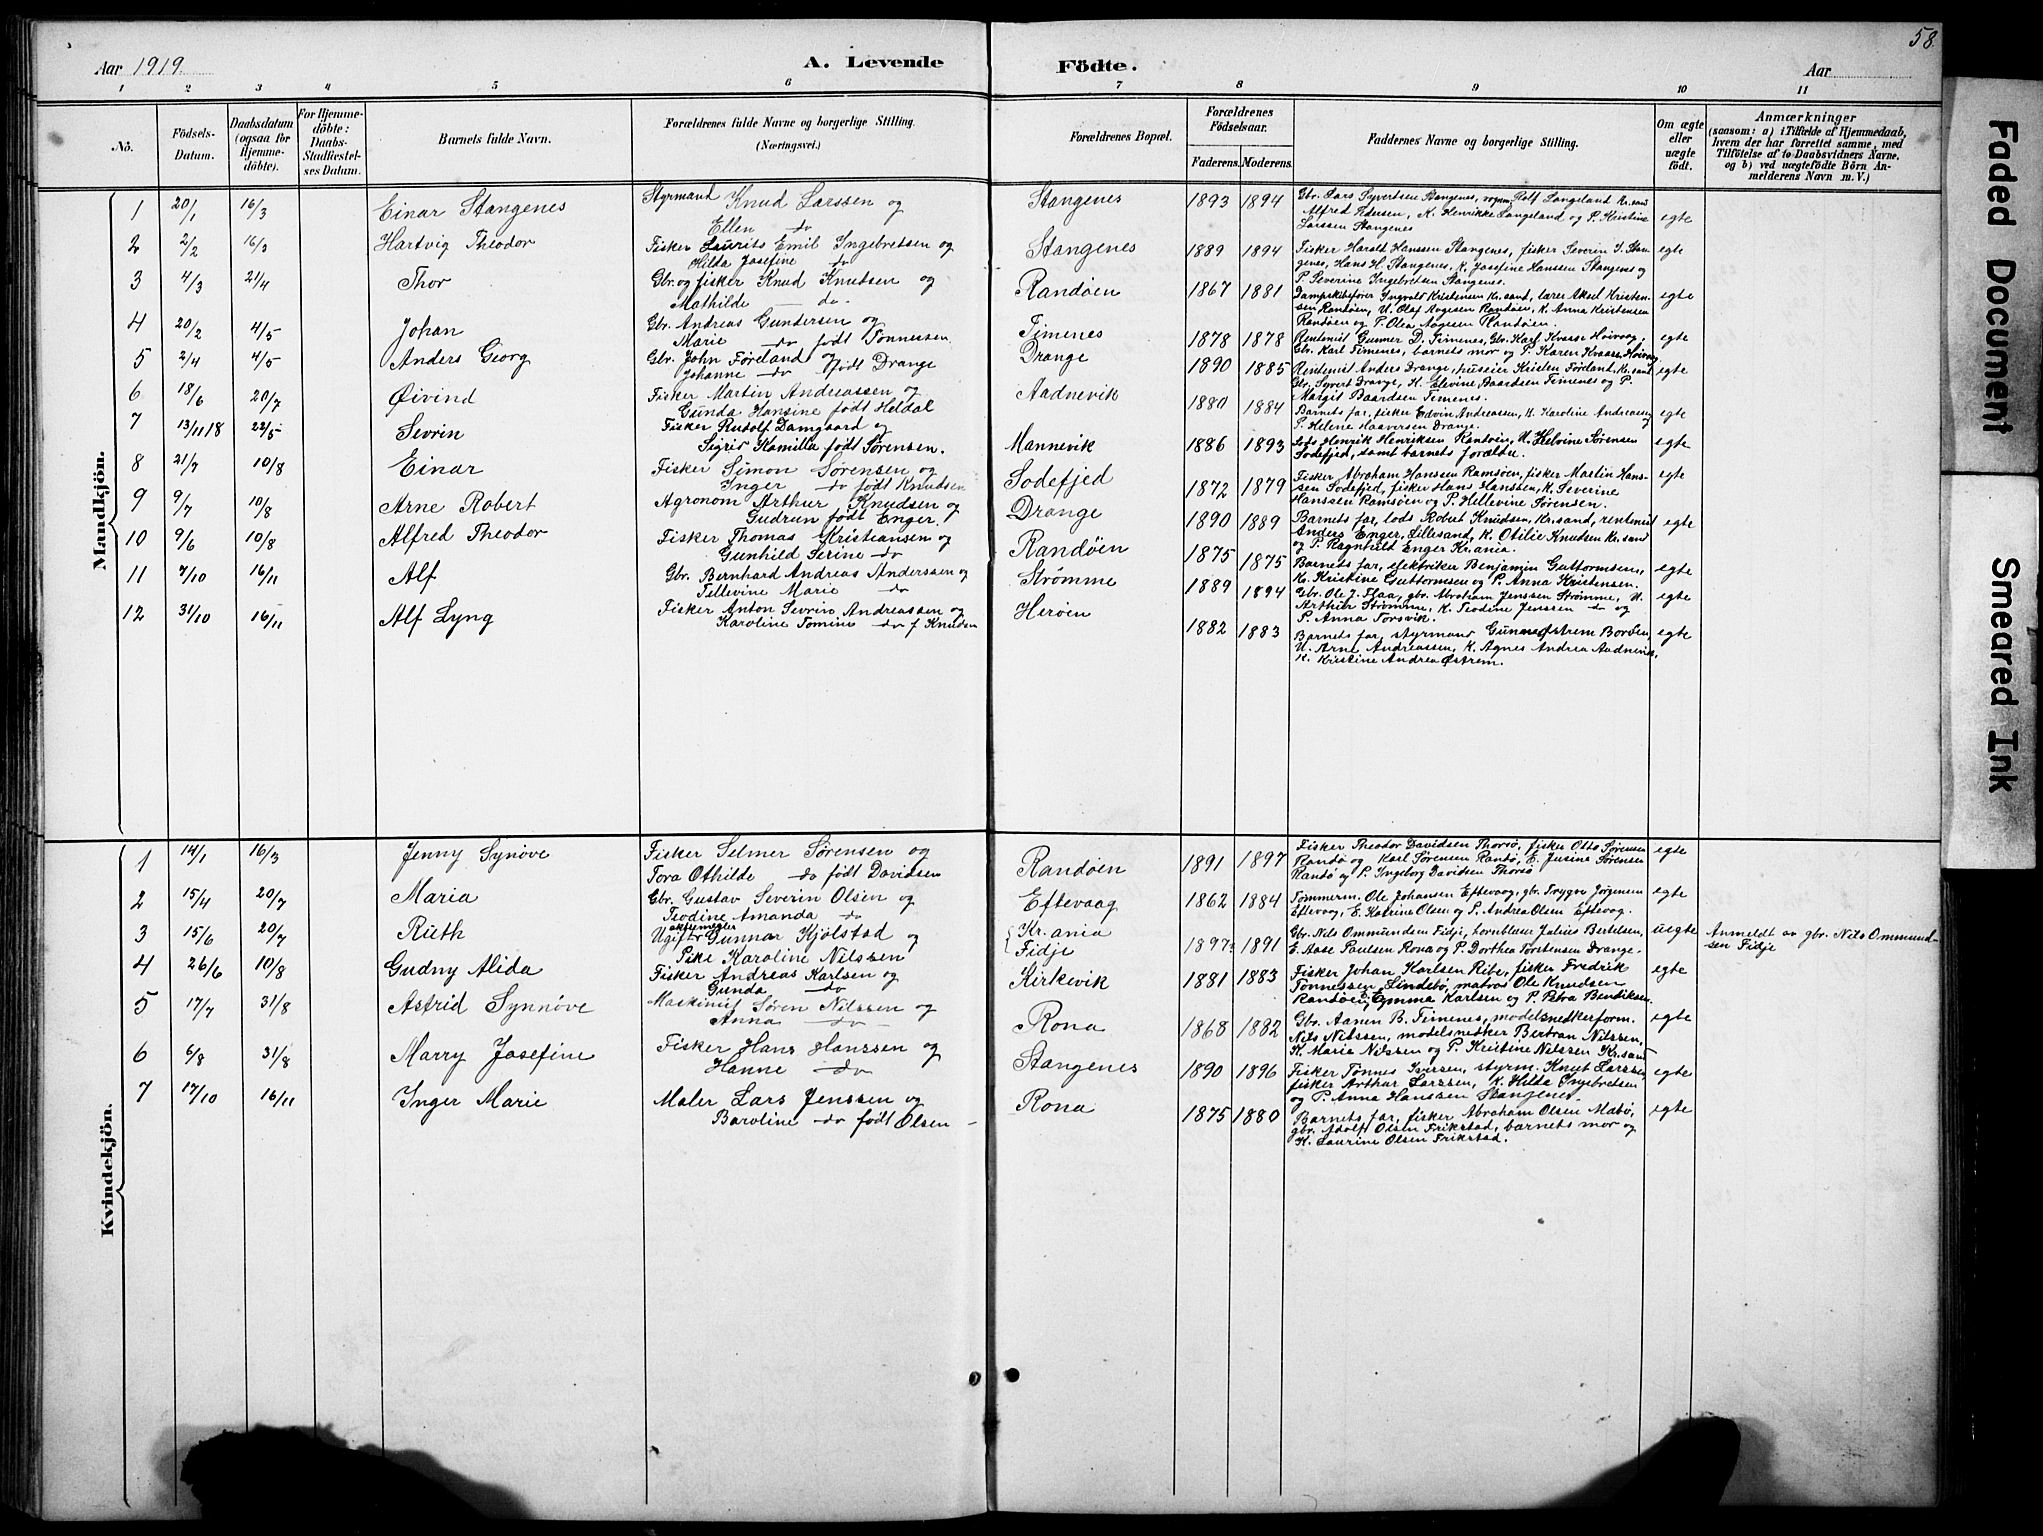 58
Aar 1919.
A. Levende Födte.
Aar
1 2 3 4 5 6 7 8 9 10 11
No.
Födsels-Datum.
Daabsdatum (ogsaa for Hjemme-döbte).
For Hjemme-döbte: Daabs-Stadfæstel-ses Datum.
Barnets fulde Navn.
Forældrenes fulde Navne og borgerlige Stilling. (Næringsvei.)
Forældrenes Bopæl.
Forældrenes Födselsaar.
Faderens. Moderens.
Faddernes Navne og borgerlige Stilling.
Om ægte eller uægte født.
Anmærkninger
(saasom: a) i Tilfælde af Hjemmedaab, hvem der har forrettet samme, med Tilföielse af to Daabsvidners Navne, og b) ved uægtefödte Börn Anmelderens Navn m. V.)
Mandkjön.
1 20/1 16/3 Einar Stangenes Styrmand Knud Larssen og Ellen do Stangenes 1893 1894 Gbr. Lars Syvertsen Stangenes, Rolf Langeland Kr.sand Alfred Iversen, K. Henrikke Langeland og P. Kristine Larssen Stangenes egte
2 2/2 16/3 Hartvig Theodor Fisker Laurits Emil Ingebretsen og Hilda Josefine do Stangenes 1889 1894 Fisker Harald Hanssen Stangenes, fisker Severin I. Stangenes, Hans H. Stangenes, K. Josefine Hanssen Stangenes og P. Severine Ingebretsen Stangenes. egte
3 4/3 21/4 Thor Gbr. og fisker Knud Knudsen og Mathilde do Randöen 1867 1881 Dampskibsfører Ingvald Kristensen Kr.sand, lærer Aksel Kristensen Randöen, U. Olaf Aagesen Randöen, K. Anna Kristensen Randöen og P. Olea Aagesen Randöen. egte
4 20/2 4/5 Johan Gbr. Andreas Gundersen og Marie do født Tønnesen Timenes 1878 1878 Rentenist Gunner D. Timenes, Gbr. Karl Kvaase Høivaag, Gbr. Karl Timenes, barnets mor og P. Karen Kvaase Høivaag egte
5 2/4 4/5 Anders Georg Gbr. John Føreland og Johanne do født Drange Drange 1890 1885 Rentenist Anders Drange, huseier Kristen Føreland, Kr.sand Gbr. Syvert Drange, K. Elevine Baardsen Timenes og P. Margit Baardsen Timenes. egte
6 18/6 20/7 Øivind Fisker Martin Andreassen og Gunda Hansine født Heldal Aadnevik 1880 1884 Barnets far, fisker Edvin Andreassen, K. Karoline Andreassen P. Helene Haaversen Drange. egte
7 13/11 18 22/5 Sevrin Fisker Rudolf Damgaard og Sigrid Kamilla født Sørensen. Mannevik 1886 1893 Lods Henrik Henriksen Randöen, U. Helvine Sørensen Sodefjed, samt barnets forældre. egte
8 21/7 10/8 Einar Fisker Simon Sørensen og Inger do født Knudsen Sodefjed 1872 1879 Fisker Abraham Hanssen Ramsöen, fisker Martin Hanssen Sodefjed, fisker Hans Hanssen, K. Severine Hanssen Ramsöen og P. Hellevine Sørensen. egte
9 9/7 10/8 Arne Robert Agronom Arthur Knudsen og Gudrun født Enger. Drange 1890 1889 Barnets far, lods Robert Knudsen, Kr.sand, rentenist Anders Enger, Lillesand, K. Otilie Knudsen Kr.sand og P. Ragnhild Enger Kr.ania. egte
10 9/6 10/8 Alfred Theodor Fisker Thomas Kristiansen og Gunhild Serine do Randöen 1875 1875 Barnets far, elektriker Benjamin Guttormsen, K. Kristine Guttormsen og P. Anna Kristensen. egte
11 7/10 16/11 Alf Gbr. Bernhard Andreas Anderssen og Tellevine Marie do Strømme 1889 1894 Gbr. Ole J. Flaa, gbr. Abraham Jenssen Strømme, U. Arthur Strømme, K. Teodine Jenssen do og P. Anna Torsvik. egte
12 31/10 16/11 Alf Lyng Fisker Anton Sevrin Andreassen og Karoline Tomine do f Knudsen Heröen 1882 1883 Barnets far, styrmand Gunn Østrem Boröen, U. Arne Andreassen, K. Agnes Andrea Aadnevik, K. Kristine Andrea Østrem. egte
Kvindekjön.
1 14/1 16/3 Jenny Synöve Fisker Selmer Sørensen og Tora Othilde do født Davidsen Randöen 1891 1897 Fisker Theodor Davidsen Thorsö, fisker Otto Sørensen Randö og Karl Sørensen Randö, E. Jusine Sørensen Randö og P. Ingeborg Davidsen Thorsö egte
2 15/4 20/7 Maria Gbr. Gustav Severin Olsen og Teodine Amanda do Eftevaag 1862 1884 Tømmerm. Ole Johansen Eftevaag, gbr. Trygve Jørgensen Eftevaag, E. Katrine Olsen og P. Andrea Olsen Eftevaag. egte
3 15/6 20/7 Ruth Ugift aktiemegler Gunnar Kjølstad og Pike Karoline Nilssen Kr.ania Fidje 1897 1891 Gbr. Nils Ommundsen Fidje, hornblaser Julius Bertelsen, E. Aase Paulsen Rona og P. Dorthea Torstensen Drange. uegte Anmeldt av gbr. Nils Ommundsen Fidje
4 26/6 10/8 Gudny Alida Fisker Andreas Karlsen og Gunda do Kirkevik 1881 1883 Fisker Johan Karlsen Ribe, fisker Fredrik Tønnessen Lindebö, matros Ole Knudsen Randöen, E. Emma Karlsen og P. Petra Bendiksen. egte
5 17/7 31/8 Astrid Synnöve Maskinist Søren Nilssen og Anna do Rona 1868 1882 Gbr. Aanen B. Timenes, modelsnedkerform. Nils Nilssen, modelsnedker Bertran Nilssen, K. Maria Nilssen og P. Kristine Nilssen Kr.sand egte
6 6/8 31/8 Marry Josefine Fisker Hans Hanssen og Hanne do Stangenes 1890 1896 Fisker Tønnes Iversen, styrm. Knut Larssen, fisker Arthur Larssen, K. Hilda Ingebretsen og P. Anna Hanssen Stangenes. egte
7 17/10 16/11 Inger Marie Maler Lars Jenssen og Baroline do født Olsen Rona 1875 1880 Barnets far, fisker Abraham Olsen Mabö, gbr. Adolf Olsen Frikstad, barnets mor og K. Laurine Olsen Frikstad. egte
Faded Document
Smeared Ink